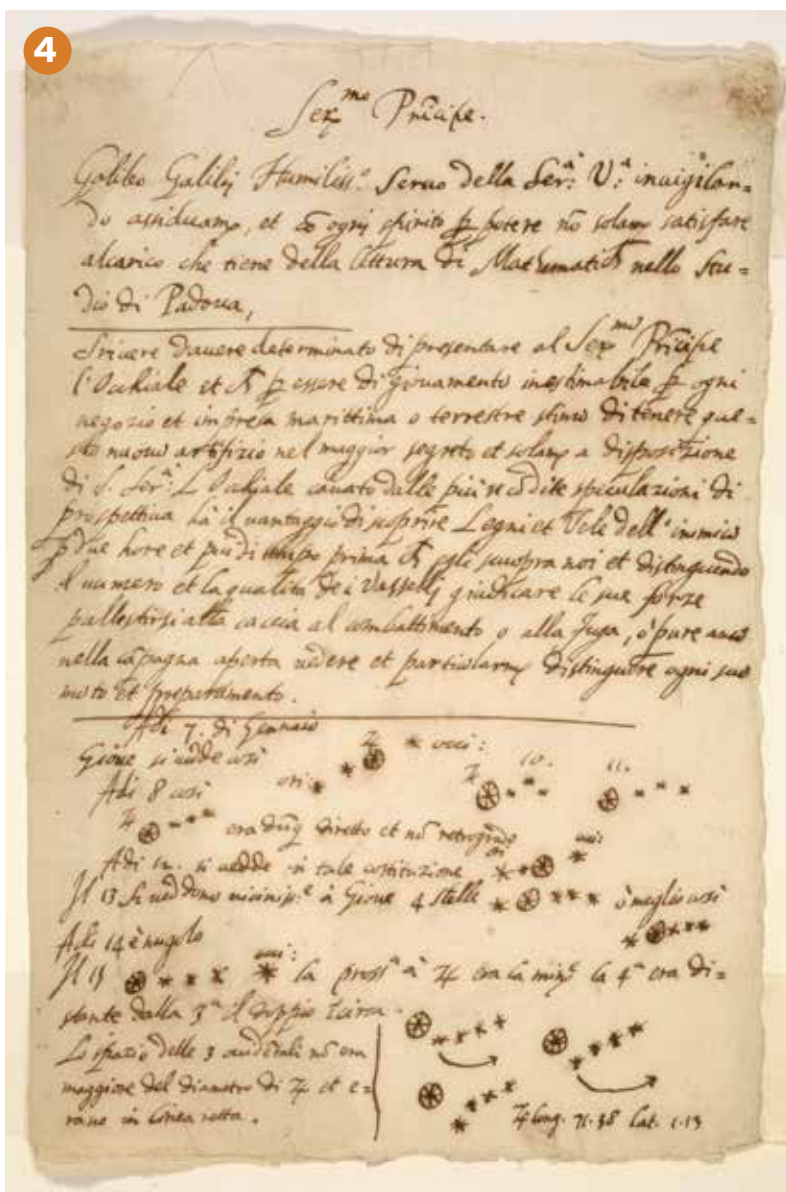 4
Ser.mo Principe.
Galileo Galilej Humiliss.o Servo della Ser.a V.a invigilan-
do assiduam.te, et cõ ogni spirito p potere nõ solam.te satisfare
alcarico che tiene della lettura di Mathematich nello Stu-
dio di Padova,
Scrivere davere determinato di presentare al Ser.mo Principe
l'Occhiale et ch p essere di giovamento inestimabile p ogni
negozio et impresa marittima o terrestre stimo di tenere que-
sto nuovo artifizio nel maggior segreto et solam.te a disposizione
di S. Ser.a L Occhiale cavato dalle più recõdite speculazioni di
prospettiva hà il vantaggio di scoprire Legni et Vele dell' inimico
p due hore et più di tempo prima ch egli scuopra noi et distinguendo
il numero et la qualità de i Vasselli giudicare le sue forze
pallestirsi alla caccia al combattimento o alla fuga, ò pure anco
nella cãpagna aperta vedere et particolarm.te distinguere ogni suo
moto et preparamento.
Adi 7. di Gennaio
Gione si vedde così ♃ * occi:
Adi 8 così ori: * * ♃ 10. 11.
♃ era dũq diretto et nõ retrogrado
Adi 12. si vedde in tale costituzione ori * * occi: *
Il 13 si veddono vicinis.e à Giove 4 stelle * * * * ò meglio così
Adi 14 è nugolo * * * *
Il 15 * * * * occi: la pross.a à ♃ era la min.e la 4.a era di-
stante dalla 3.a il doppio circa.
Lo spazio delle 3 occidẽtali nõ era
maggiore del diametro di ♃ et e-
rano in linea retta.
♃ long. 71.38 Lat. 1.13